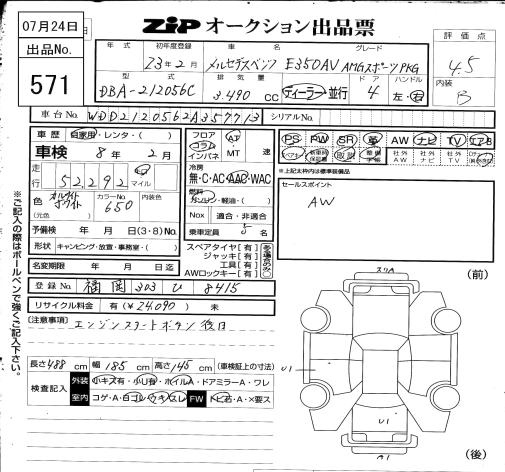 07月24日
出品No.
571
ZiP オークション出品票
年式 初年度登録 車名 グレード
23年2月 メルセデスベンツ E350AV AMGスポーツPKG
型式 排気量 ドア ハンドル
DBA-212056C 3.490 cc ディーラー 並行 4 左・右
評価点
4.5
内装
B
車台No. WDD2120562A357713 シリアルNo.
車歴 自家用・レンタ・( )
車検 8年 2月
走行 52,292 マイル
色 カラーNo. 内装色
650
(元色)
予備検 年 月 日(3・8)No.
形状 キャンピング・放置・事務室・( )
フロア コラム インパネ AT・MT 速
冷房
無・C・AC・AAC・WAC
燃料
ガソリン・軽油・( )
Nox 適合・非適合
乗車定員 5 名
PS PW SR 革 AW ナビ TV エアB
取説 社外AW 社外ナビ 社外TV
※上記太枠内は標準装備品
セールスポイント
AW
スペアタイヤ[有]
ジャッキ[有]
工具[有]
AWロックキー[有]
名変期限 年 月 日迄
登録No. 福岡 303 U 8415
リサイクル料金 有(¥24,090) 未
[注意事項] エンジンスタートボタン後日
長さ488cm 幅185cm 高さ145cm(車検証上の寸法)
検査記入 外装 小キズ有・小U有・ホイルA・ドアミラーA・ワレ
室内 コゲ・A・白ゴレ・ウキスレ FW トビ石・A・×要ス
※ご記入の際はボールペンで強くご記入下さい。
(前)
スリA
U1
U1
(後)